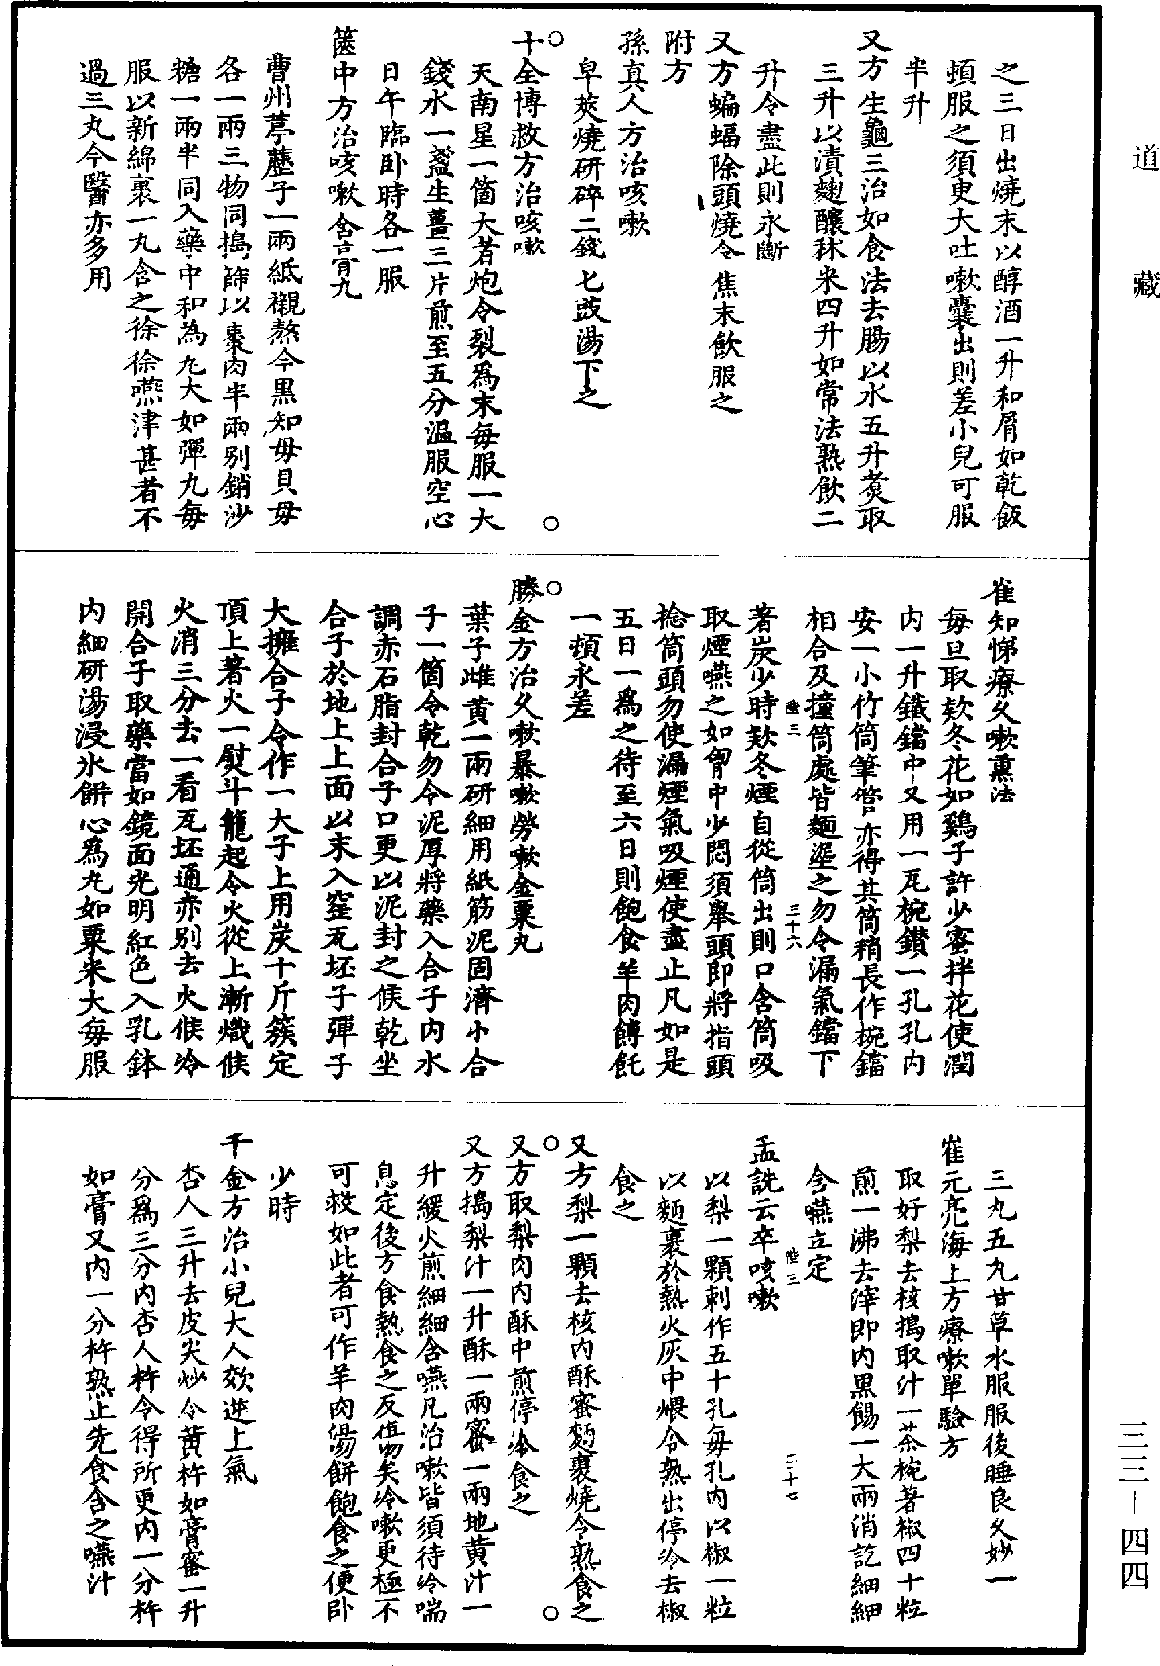 道藏
三三－四四
之三日出燒末以醇酒一升和屑如乾飯
頓服之須臾大吐嗽囊出則差小兒可服
半升
又方生龜三治如食法去腸以水五升煑取
三升以漬麴釀秫米四升如常法熟飲二
升令盡此則永斷
又方蝙蝠除頭燒令焦末飲服之
附方
孫真人方治咳嗽
皁莢燒研碎二錢匕豉湯下之
十全博救方治咳嗽
天南星一箇大者炮令裂為末每服一大
錢水一盞生薑三片煎至五分溫服空心
日午臨卧時各一服
篋中方治咳嗽含膏丸
曹州葶藶子一兩紙襯熬令黑知母貝母
各一兩三物同搗篩以棗肉半兩別銷沙
糖一兩半同入藥中和為丸大如彈丸每
服以新綿裹一丸含之徐徐嚥津甚者不
過三丸今醫亦多用
崔知悌療久嗽熏法
每旦取欵冬花如鷄子許少蜜拌花使潤
內一升鐵鐺中又用一瓦椀鑽一孔孔內
安一小竹筒筆管亦得其筒稍長作椀鐺
相合及撞筒處皆麵埿之勿令漏氣鐺下
陸三
三十六
著炭少時欵冬煙自從筒出則口含筒吸
取煙嚥之如胷中少悶須舉頭即將指頭
捻筒頭勿使漏煙氣吸煙使盡止凡如是
五日一為之待至六日則飽食羊肉餺飥
一頓永差
勝金方治久嗽暴嗽勞嗽金粟丸
葉子雌黃一兩研細用紙筋泥固濟小合
子一箇令乾勿令泥厚將藥入合子內水
調赤石脂封合子口更以泥封之候乾坐
合子於地上上面以末入窰瓦坯子彈子
大擁合子令作一大子上用炭十斤簇定
頂上著火一熨斗籠起令火從上漸熾候
火消三分去一看瓦坯通赤別去火候冷
開合子取藥當如鏡面光明紅色入乳鉢
內細研湯浸氷餅心為丸如粟米大每服
三丸五丸甘草水服服後睡良久妙一
崔元亮海上方療嗽單驗方
取好梨去核搗取汁一茶椀著椒四十粒
煎一沸去滓即內黑餳一大兩消訖細細
含嚥立定
陸三
三十七
孟詵云卒咳嗽
以梨一顆刺作五十孔每孔內以椒一粒
以麵裹於熱火灰中煨令熟出停冷去椒
食之
又方梨一顆去核內酥蜜麵裹燒令熟食之
又方取梨肉內酥中煎停冷食之
又方搗梨汁一升酥一兩蜜一兩地黃汁一
升緩火煎細細含嚥凡治嗽皆須待冷喘
息定後方食熱食之反傷矣冷嗽更極不
可救如此者可作羊肉湯餅飽食之便卧
少時
千金方治小兒大人欬逆上氣
杏人三升去皮尖炒令黃杵如膏蜜一升
分為三分內杏人杵令得所更內一分杵
如膏又內一分杵熟止先食含之嚥汁